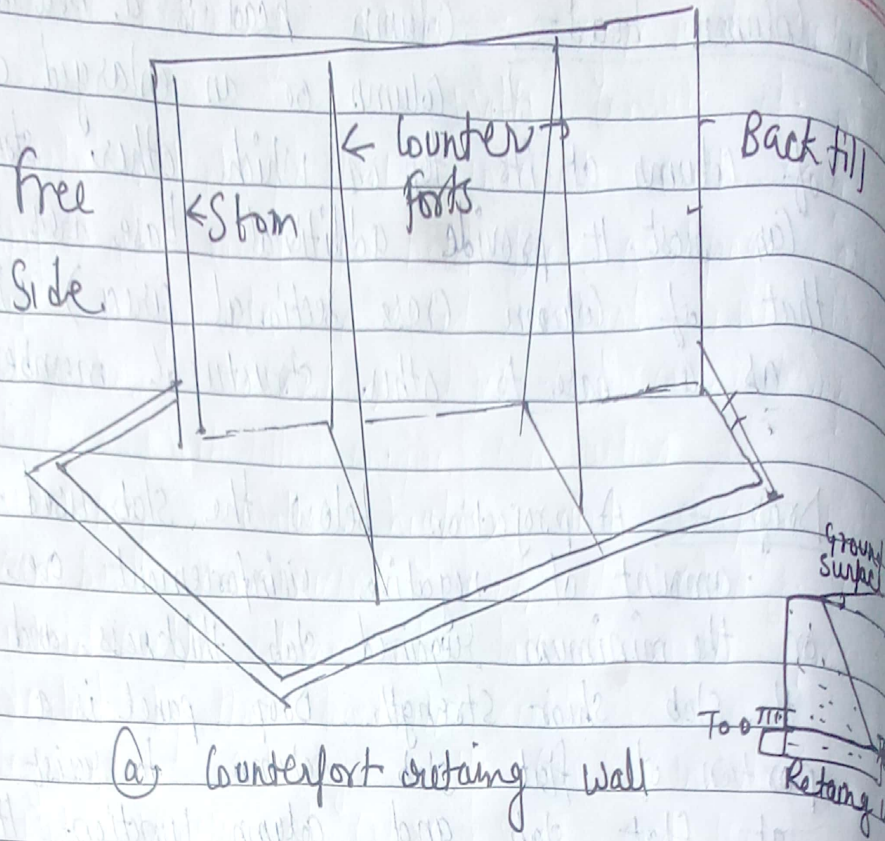 free
Side
← Stom
← Counter →
forts
Back fill
Ground
Surfac
Too
Retaing
(a). Counterfort retaing wall